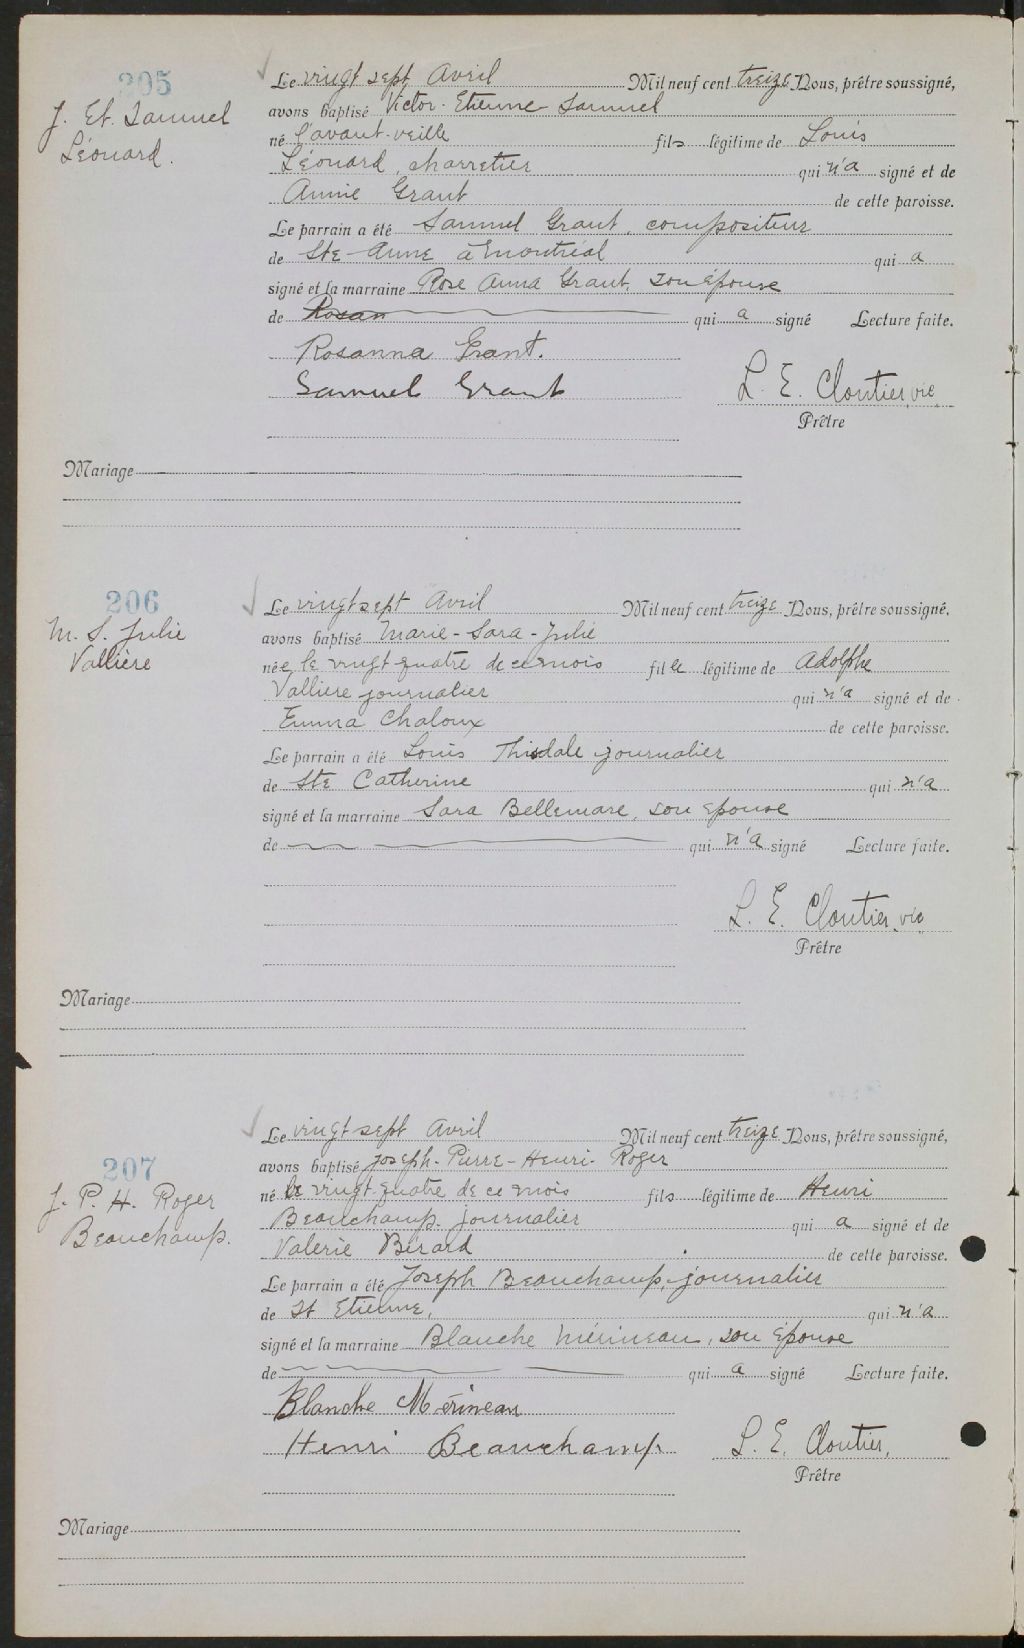 205
J. Et. Samuel
Léonard.
Le vingt sept Avril Mil neuf cent treize Nous, prêtre soussigné,
avons baptisé Victor-Etienne-Samuel
né l'avant-veille fils légitime de Louis
Léonard, charretier qui n'a signé et de
Annie Grant de cette paroisse.
Le parrain a été Samuel Grant, compositeur
de Ste-Anne à Montréal qui a
signé et la marraine Rose Anna Grant, son épouse
de Rosan qui a signé Lecture faite.
Rosanna Grant.
Samuel Grant L. E. Cloutier, vic
Prêtre
Mariage
206
M. S. Julie
Vallière
Le vingt sept Avril Mil neuf cent treize Nous, prêtre soussigné,
avons baptisé Marie-Sara-Julie
née le vingt quatre de ce mois fille légitime de Adolphe
Valliere journalier qui n'a signé et de
Emma Chaloux de cette paroisse.
Le parrain a été Louis Thisdale journalier
de Ste Catherine qui n'a
signé et la marraine Sara Bellemare, son épouse
de qui n'a signé Lecture faite.
L. E. Cloutier, vic
Prêtre
Mariage
207
J. P. H. Roger
Beauchamp.
Le vingt sept Avril Mil neuf cent treize Nous, prêtre soussigné,
avons baptisé Joseph-Pierre-Henri-Roger
né le vingt-quatre de ce mois fils légitime de Henri
Beauchamp, journalier qui a signé et de
Valerie Bérard de cette paroisse.
Le parrain a été Joseph Beauchamp, journalier
de St Etienne, qui n'a
signé et la marraine Blanche Mérineau, son épouse
de qui a signé Lecture faite.
Blanche Mérineau
Henri Beauchamp L. E. Cloutier,
Prêtre
Mariage